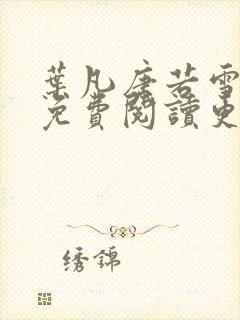 葉凡唐若雪
免費閱讀更
绣錦